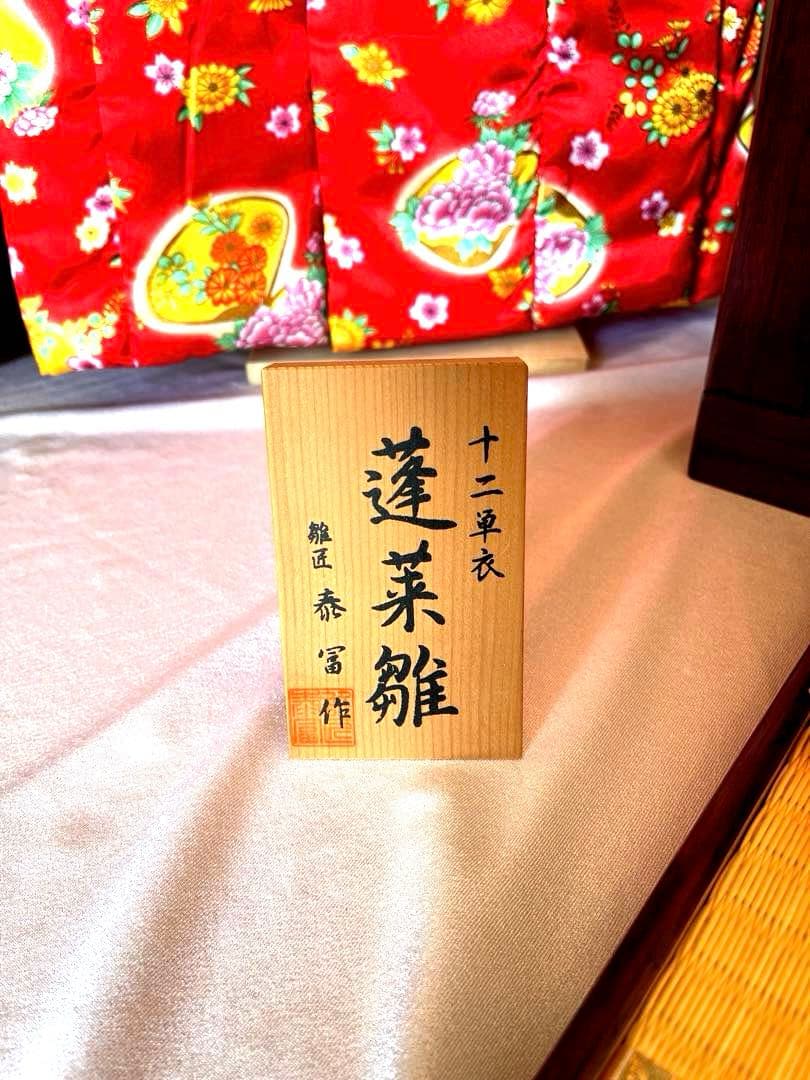 十二単衣
蓬莱雛
雛匠 泰冨作